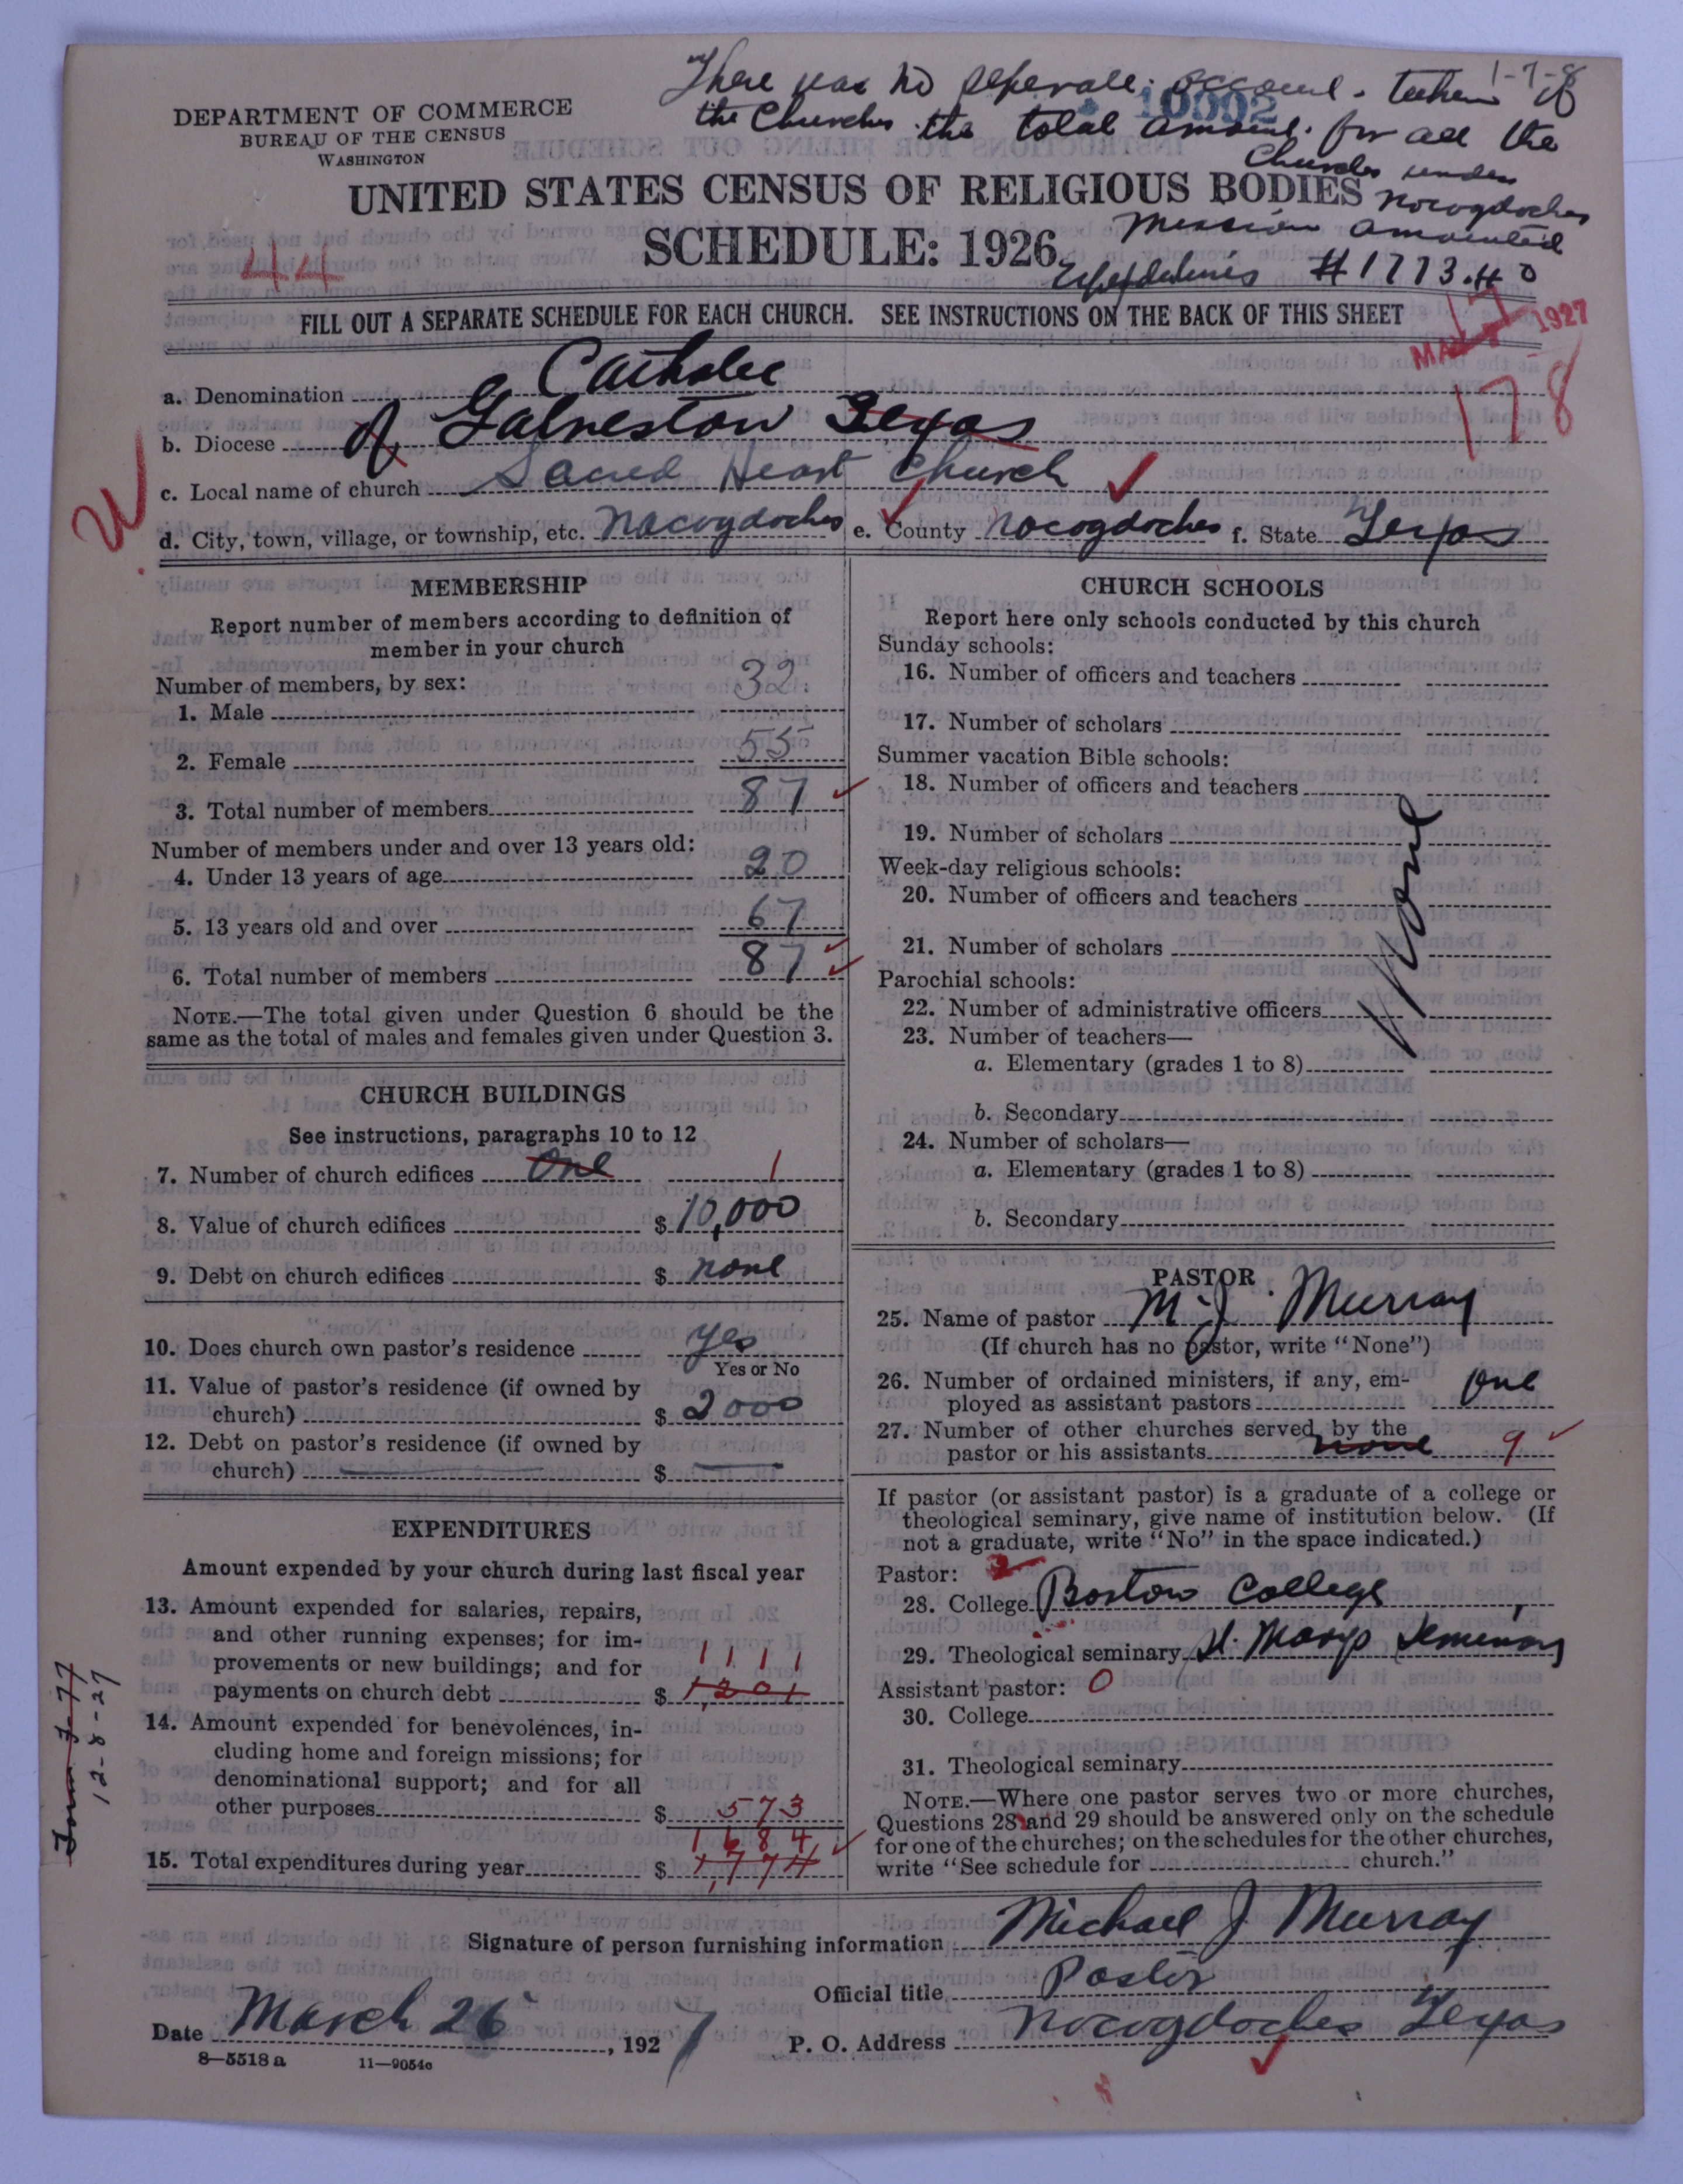 1-7-8
There was no seperate account taken of
10092
the Churches the total amount for all the
Churches under
Nacogdoches
Mission amounted
DEPARTMENT OF COMMERCE
BUREAU OF THE CENSUS
WASHINGTON
UNITED STATES CENSUS OF RELIGIOUS BODIES
SCHEDULE: 1926
44
#1773.40
FILL OUT A SEPARATE SCHEDULE FOR EACH CHURCH. SEE INSTRUCTIONS ON THE BACK OF THIS SHEET
MAY 17 1927
178
a. Denomination Catholic
b. Diocese of Galveston Texas
c. Local name of church Sacred Heart Church
d. City, town, village, or township, etc. Nacogdoches e. County Nacogdoches f. State Texas
MEMBERSHIP
Report number of members according to definition of
member in your church
Number of members, by sex:
1. Male 32
2. Female 55
3. Total number of members 87
Number of members under and over 13 years old:
4. Under 13 years of age 20
5. 13 years old and over 67
6. Total number of members 87
NOTE.—The total given under Question 6 should be the
same as the total of males and females given under Question 3.
CHURCH BUILDINGS
See instructions, paragraphs 10 to 12
7. Number of church edifices One 1
8. Value of church edifices $ 10,000
9. Debt on church edifices $ none
10. Does church own pastor's residence yes
Yes or No
11. Value of pastor's residence (if owned by
church) $ 2000
12. Debt on pastor's residence (if owned by
church) $
EXPENDITURES
Amount expended by your church during last fiscal year
13. Amount expended for salaries, repairs,
and other running expenses; for im-
provements or new buildings; and for 1111
payments on church debt $ 1,201
14. Amount expended for benevolences, in-
cluding home and foreign missions; for
denominational support; and for all
other purposes $ 573
1684
15. Total expenditures during year $ 1,774
12-8-27
CHURCH SCHOOLS
Report here only schools conducted by this church
Sunday schools:
16. Number of officers and teachers
17. Number of scholars
Summer vacation Bible schools:
18. Number of officers and teachers
19. Number of scholars
Week-day religious schools:
20. Number of officers and teachers
21. Number of scholars
Parochial schools:
22. Number of administrative officers
23. Number of teachers—
a. Elementary (grades 1 to 8)
b. Secondary
24. Number of scholars—
a. Elementary (grades 1 to 8)
b. Secondary
None
PASTOR
25. Name of pastor M. J. Murray
(If church has no pastor, write "None")
26. Number of ordained ministers, if any, em-
ployed as assistant pastors one
27. Number of other churches served by the
pastor or his assistants none 9
If pastor (or assistant pastor) is a graduate of a college or
theological seminary, give name of institution below. (If
not a graduate, write "No" in the space indicated.)
Pastor: 2
28. College Boston College
29. Theological seminary St. Marys Seminary
Assistant pastor: 0
30. College
31. Theological seminary
NOTE.—Where one pastor serves two or more churches,
Questions 28 and 29 should be answered only on the schedule
for one of the churches; on the schedules for the other churches,
write "See schedule for church."
Signature of person furnishing information Michael J. Murray
Official title Pastor
Date March 26, 1927 P. O. Address Nacogdoches Texas
8—5518 a 11—9054c